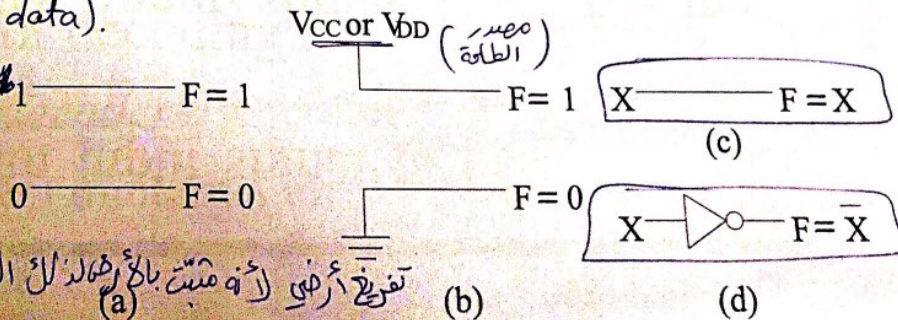 data).
VCC or VDD (مصدر الطاقة)
1 F = 1
F= 1
X F = X
(c)
0 F = 0
F = 0
X F = X̅
تفريغ أرضي لأنه مثبت بالأرض لذلك
(a) (b) (d)